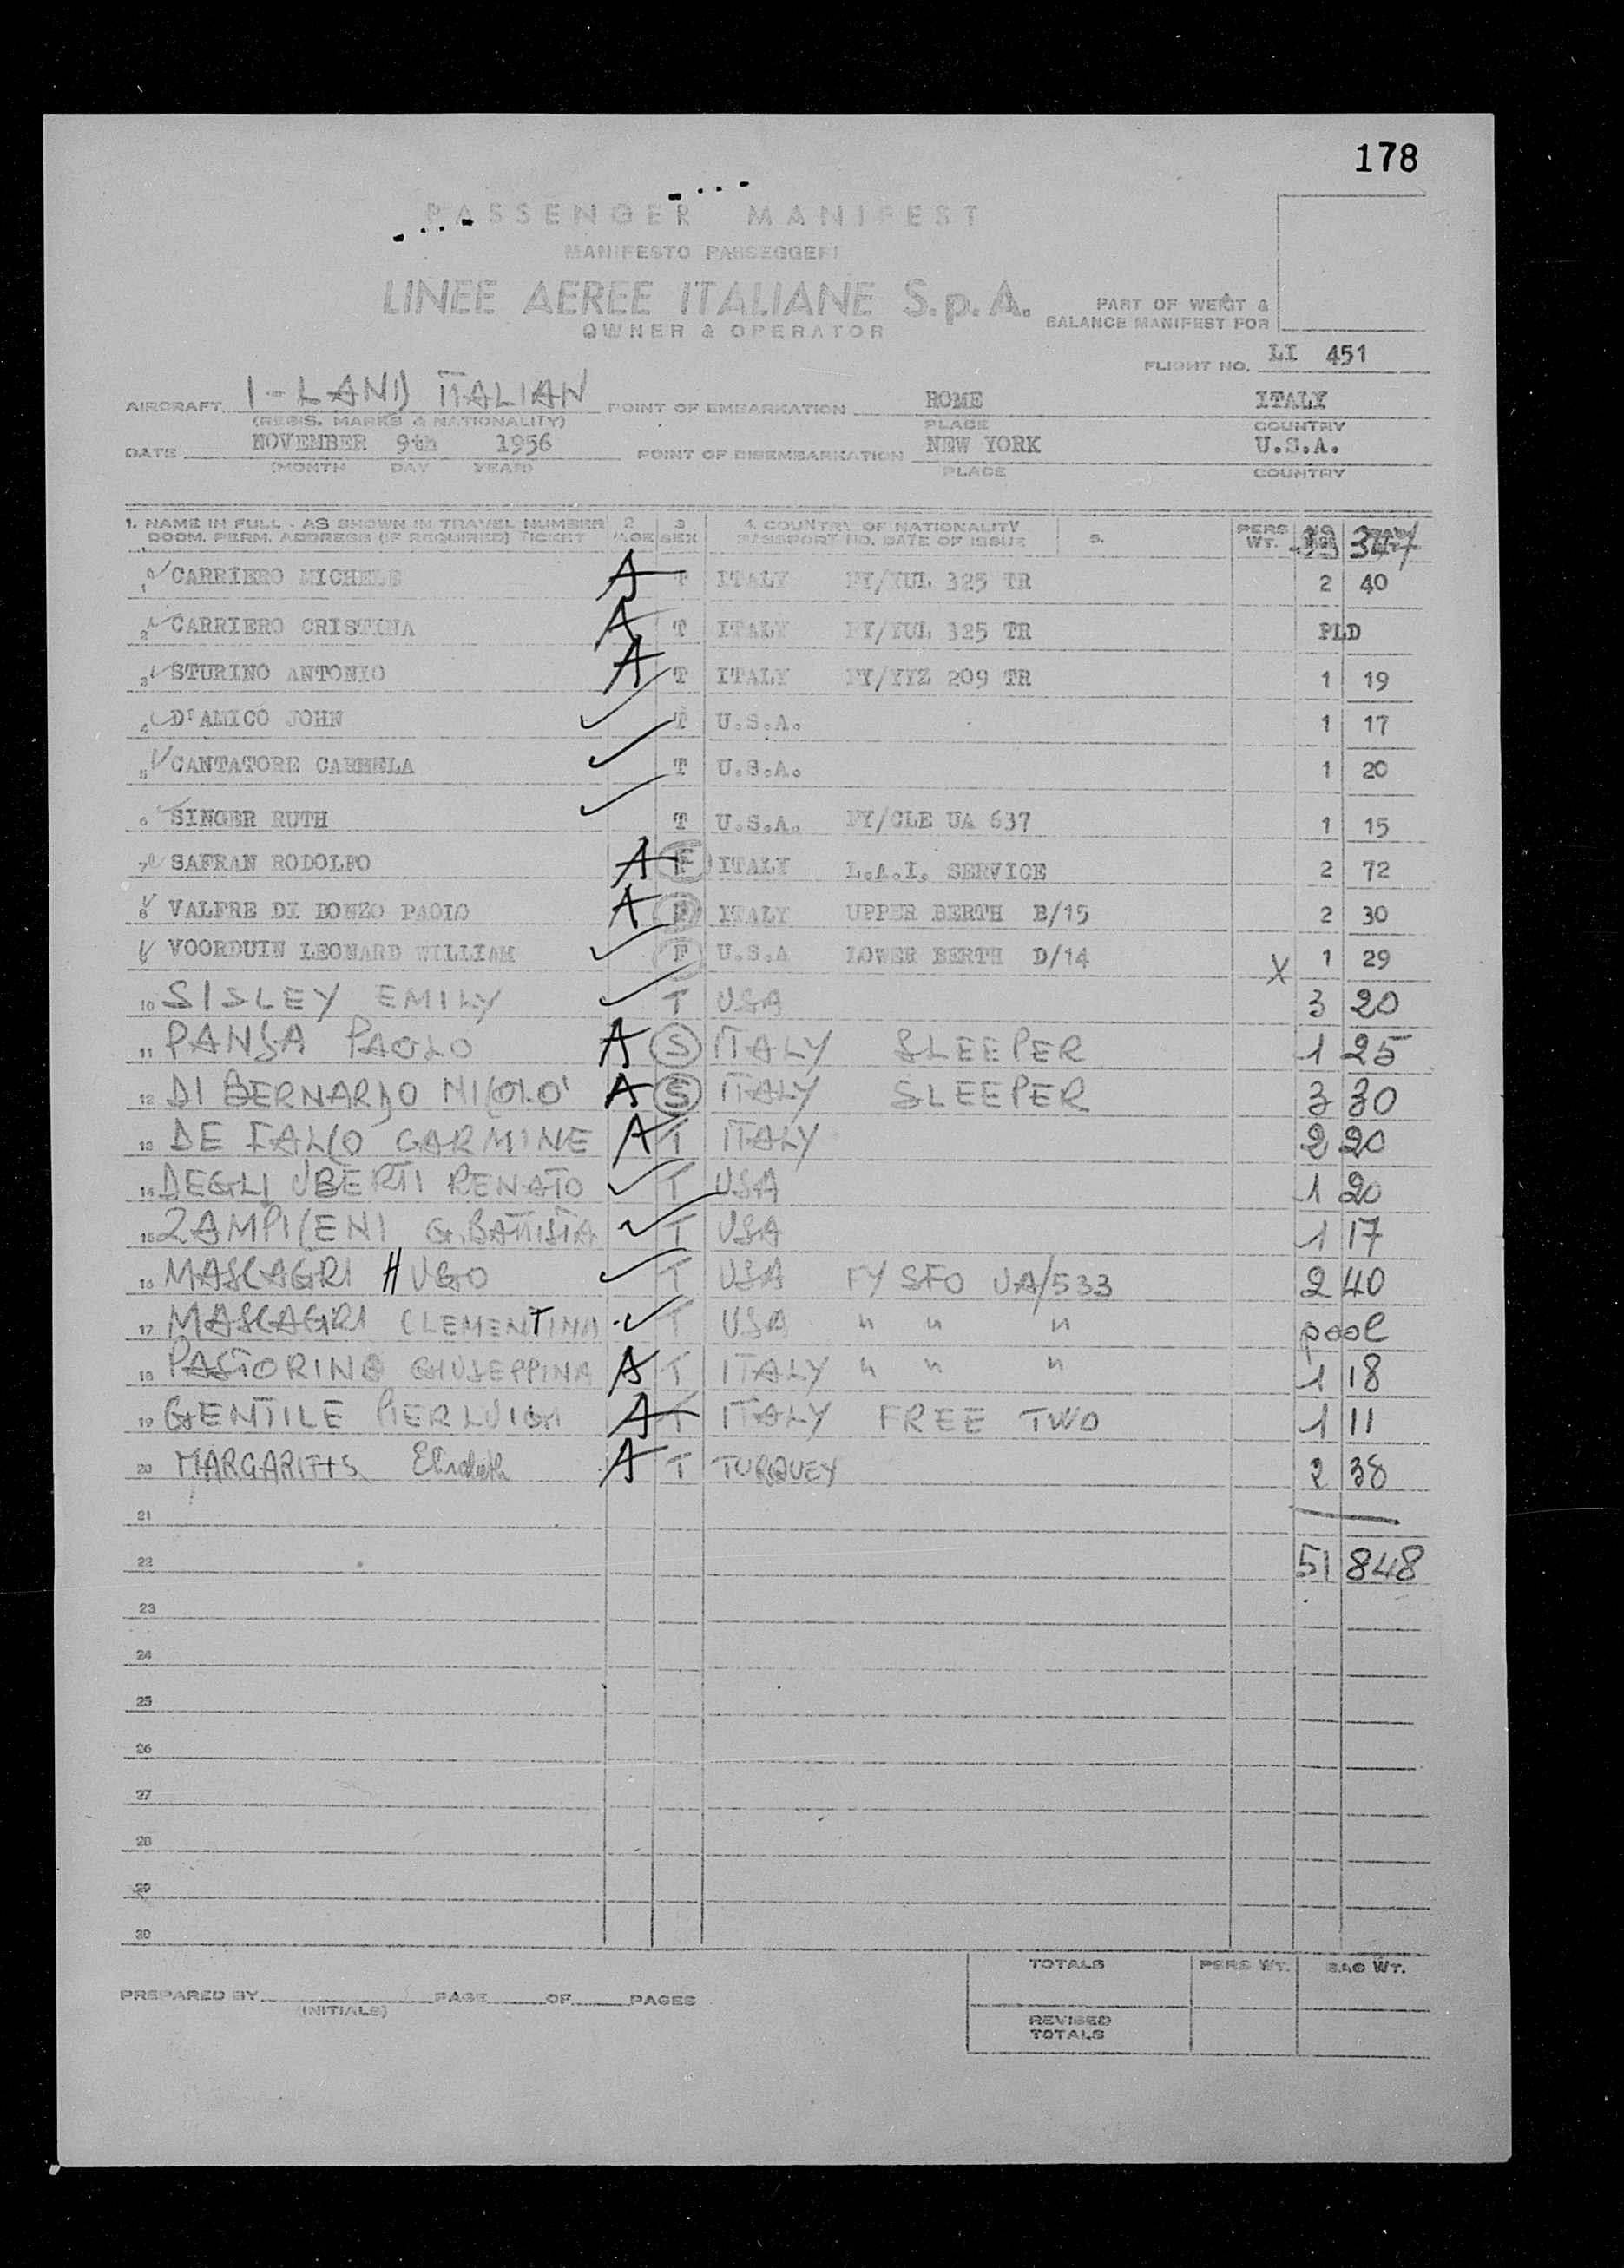 178
PASSENGER MANIFEST
MANIFESTO PASSEGGERI
LINEE AEREE ITALIANE S.p.A.
OWNER & OPERATOR
PART OF WEIGT &
BALANCE MANIFEST FOR
FLIGHT NO. LI 451
AIRCRAFT I-LAND ITALIAN POINT OF EMBARKATION ROME ITALY
(REGIS. MARKS & NATIONALITY) PLACE COUNTRY
DATE NOVEMBER 9th 1956 POINT OF DISEMBARKATION NEW YORK U.S.A.
(MONTH DAY YEAR) PLACE COUNTRY
1. NAME IN FULL - AS SHOWN IN TRAVEL NUMBER 2 3 4. COUNTRY OF NATIONALITY PERS NO
DOOM. PERM. ADDRESS (IF REQUIRED) TICKET AGE SEX PASSPORT NO. DATE OF ISSUE 5. WT. 347
1 CARRIERO MICHELE A T ITALY FY/YUL 325 TR 2 40
2 CARRIERO CRISTINA A T ITALY FY/YUL 325 TR PLD
3 STURINO ANTONIO A T ITALY FY/YYZ 209 TR 1 19
4 D'AMICO JOHN T U.S.A. 1 17
5 CANTATORE CARMELA T U.S.A. 1 20
6 SINGER RUTH T U.S.A. FY/CLE UA 637 1 15
7 SAFRAN RODOLFO A F ITALY L.A.I. SERVICE 2 72
8 VALFRE DI BONZO PAOLO A F ITALY UPPER BERTH B/15 2 30
VOORDUIN LEONARD WILLIAM F U.S.A LOWER BERTH D/14 X 1 29
10 SISLEY EMILY T USA 3 20
11 PANSA PAOLO A S ITALY SLEEPER 1 25
12 DI BERNARDO NICOLO' A S ITALY SLEEPER 3 30
13 DE FALCO CARMINE A T ITALY 2 20
14 DEGLI UBERTI RENATO T USA 1 20
15 ZAMPICENI G.BATTISTA T USA 1 17
16 MASCAGRI HUGO T USA FY SFO UA/533 2 40
17 MASCAGRI CLEMENTINA T USA " " " pool
18 PASTORINO GIUSEPPINA A T ITALY " " " 1 18
19 GENTILE PIERLUIGI A T ITALY FREE TWO 1 11
20 MARGARITIS Elisabeth A T TURQUEY 2 38
21
22 51 848
23
24
25
26
27
28
29
30
TOTALS PERS WT. BAG WT.
PREPARED BY PAGE OF PAGES
(INITIALS)
REVISED
TOTALS